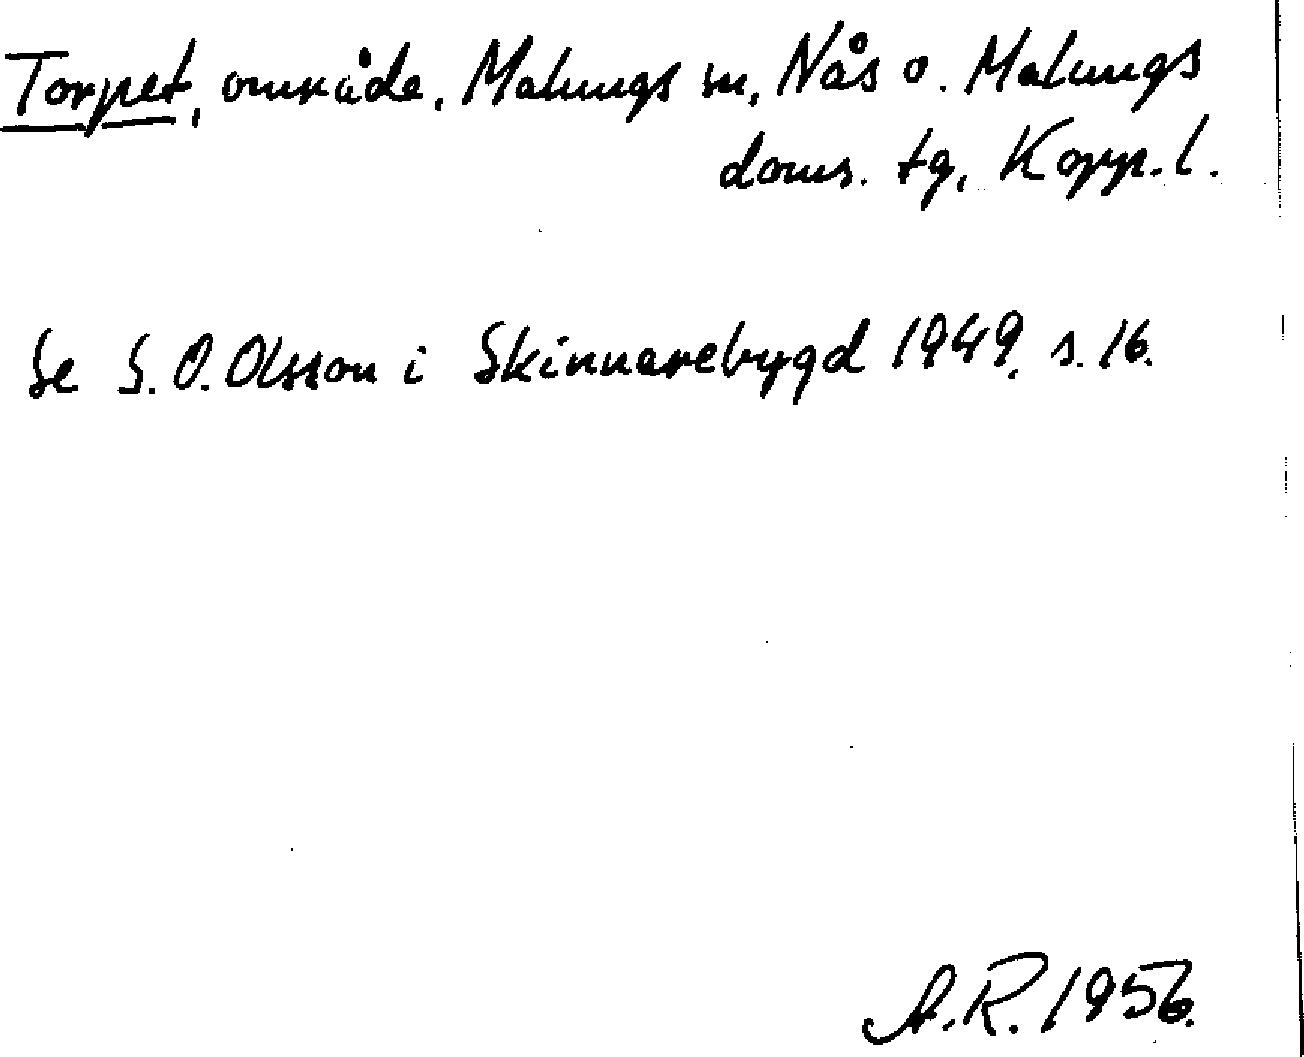 Torpet, område, Malungs sn, Nås o. Malungs
doms. tg, Kopp. l.
Se S. O. Olsson i Skinnarebygd 1949, s. 16.
A. R. 1956.